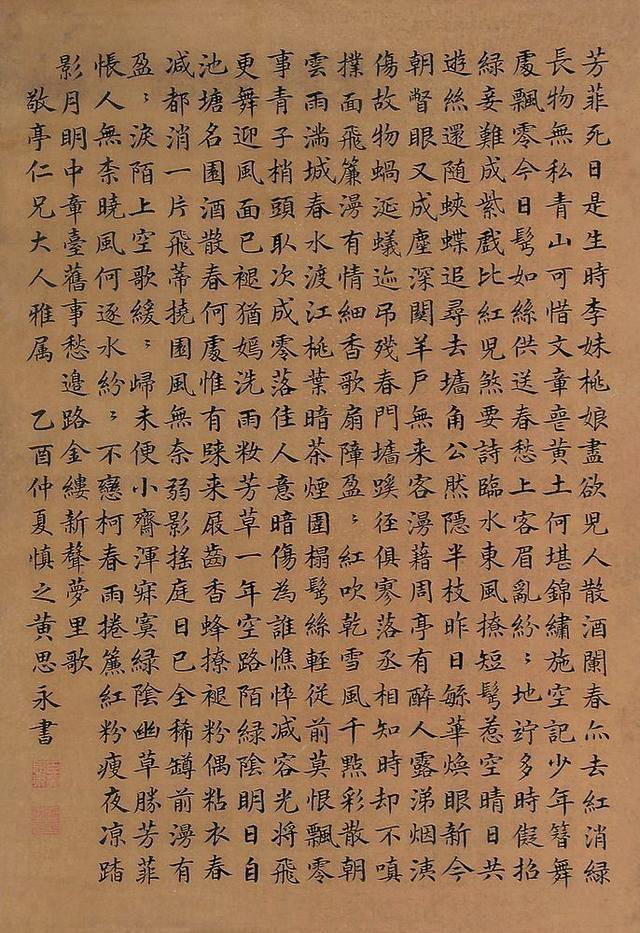 芳菲死日是生時李妹桃娘盡欲兒人散酒闌春亦去紅消綠
長物無私青山可惜文章喪黃土何堪錦繡施空記少年簪舞
處飄零今日鬂如絲供送春愁上客眉亂紛〻地竚多時假招
綠妾難成紫戲比紅兒煞要詩臨水東風撩短鬂惹空晴日共
遊絲還随蛺蝶追尋去墻角公然隱半枝昨日繁華煥眼新今
朝瞥眼又成塵深関羊戶無来客漫藉周亭有醉人露涕烟洟
傷故物蝸涎蟻迹吊殘春門墻蹊徑俱寥落丞相知時却不嗔
撲面飛簾漫有情細香歌扇障盈〻紅吹乾雪風千點彩散朝
雲雨滿城春水渡江桃葉暗茶煙圍榻鬂絲輕従前莫恨飄零
事青子梢頭取次成零落佳人意暗傷為誰憔悴减容光將飛
更舞迎風面已褪猶嫣洗雨妝芳草一年空路陌綠陰明日自
池塘名園酒散春何處惟有歸来屐齒香蜂撩褪粉偶粘衣春
减都消一片飛蒂撓園風無奈弱影搖庭日已全稀罇前漫有
盈〻淚陌上空歌緩〻歸未便小齋渾寂寞綠陰幽草勝芳菲
悵人無柰曉風何逐水紛〻不戀柯春雨捲簾紅粉瘦夜凉踏
影月明中章臺舊事愁邊路金縷新聲夢里歌
敬亭仁兄大人雅属 乙酉仲夏慎之黃思永書